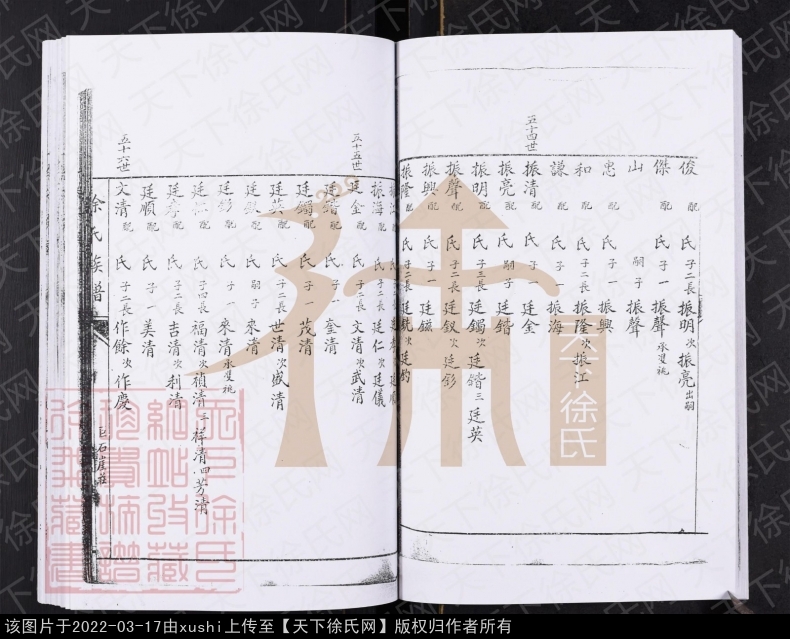 俊 配 氏 子二長 振明 次 振亮 出嗣
傑 配 氏 子一 振聲 承雙祧
山 配 嗣子 振聲
忠 配 氏 子一 振興
和 配 氏 子二長 振隆 次 振江
謙 配 氏 子一 振海
五十四世
振清 配 氏 子一 廷金
振亮 配 氏 嗣子 廷鍇
振明 配 氏 子三長 廷鐲 次 廷鍇 三 廷英
振聲 配 氏 子二長 廷釵 次 廷釤
振興 配 氏 子一 廷鎡
振隆 配 氏 子二長 廷 次 廷鈞
振海 配 氏 子二長 廷仁 次 廷儀
五十五世
廷金 配 氏 子二長 文清 次 武清
廷鍇 配 氏 子一 奎清
廷鐲 配 氏 子一 茂清
廷英 配 氏 子二長 世清 次 盛清
廷釵 配 氏 嗣子 來清
廷釤 配 氏 子一 來清 承雙祧
廷仁 配 氏 子四長 福清 次 禎清 三 祥清 四 芳清
配 氏 子二長 吉清 次 利清
廷順 配 氏 子一 美清
五十六世
文清 配 氏 子二長 作餘 次 作慶
徐氏族譜
巨石崖莊
天下徐氏
天下徐氏网
该图片于2022-03-17由xushi上传至【天下徐氏网】版权归作者所有